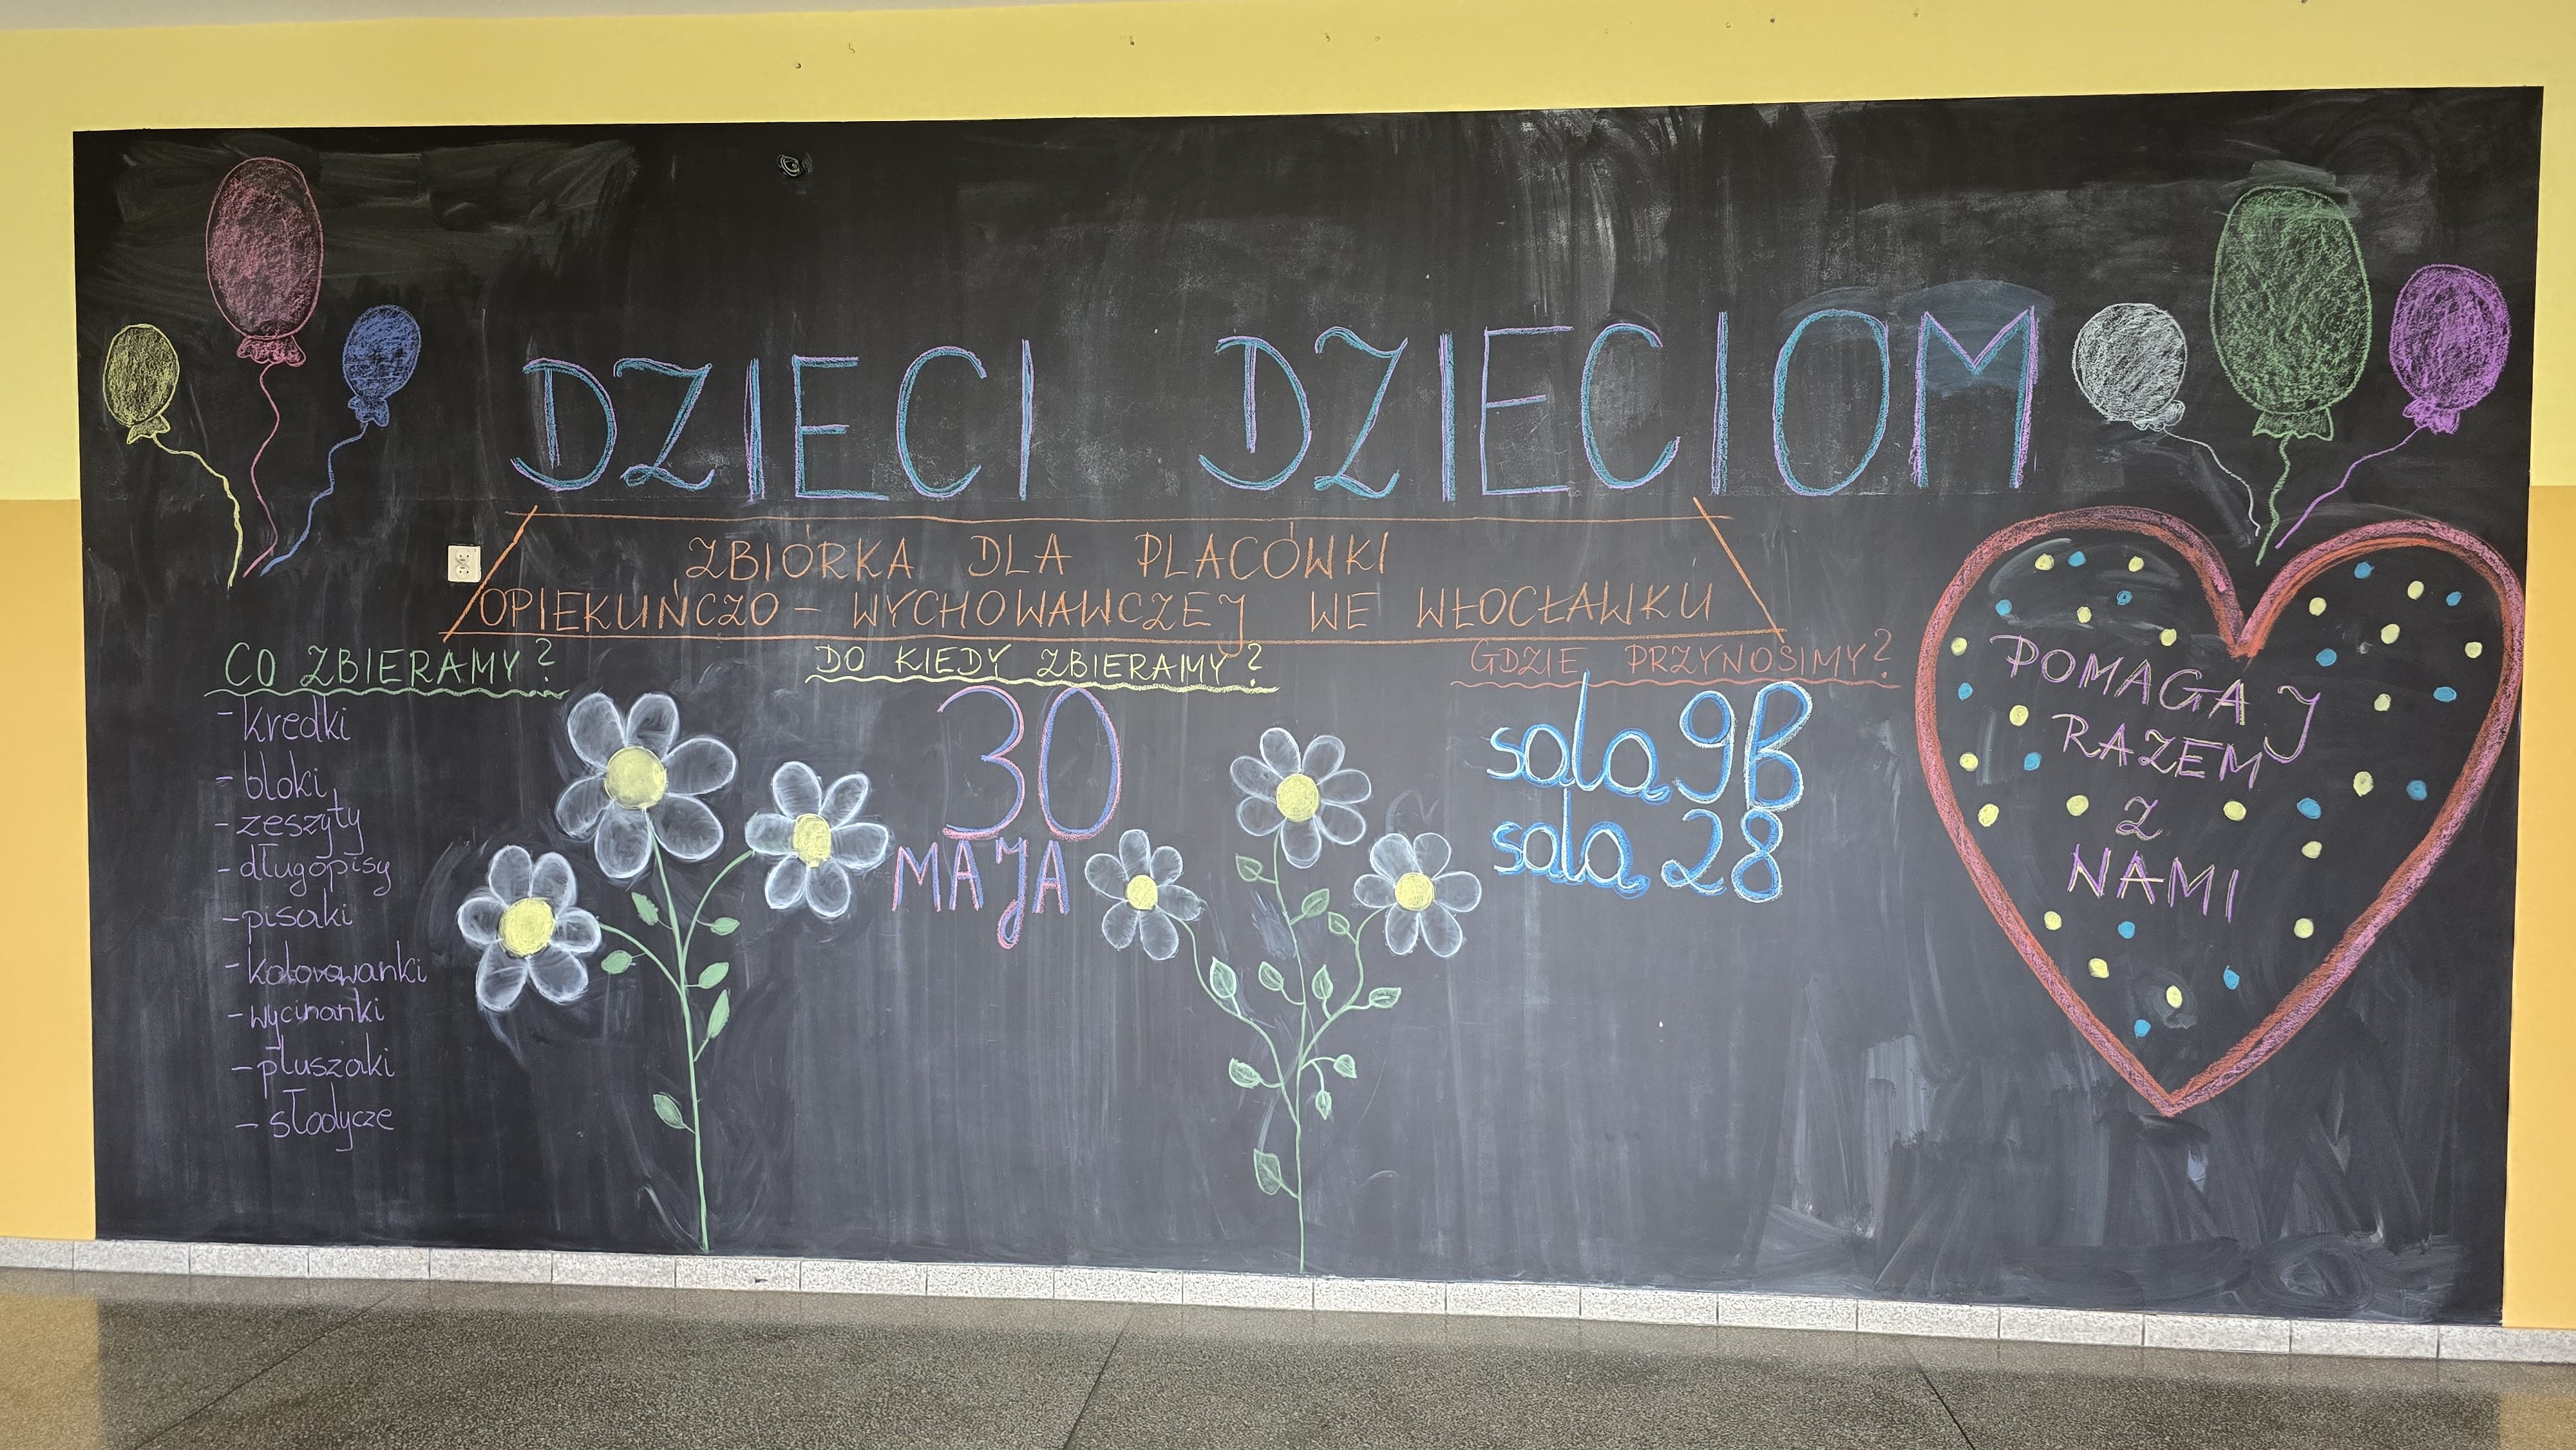 DZIECI DZIECIOM
ZBIÓRKA DLA PLACÓWKI
OPIEKUŃCZO - WYCHOWAWCZEJ WE WŁOCŁAWKU
CO ZBIERAMY?
- kredki
- bloki
- zeszyty
- długopisy
- pisaki
- kolorowanki
- wycinanki
- pluszaki
- słodycze
DO KIEDY ZBIERAMY?
30
MAJA
GDZIE PRZYNOSIMY?
sala 9B
sala 28
POMAGAJ
RAZEM
Z
NAMI